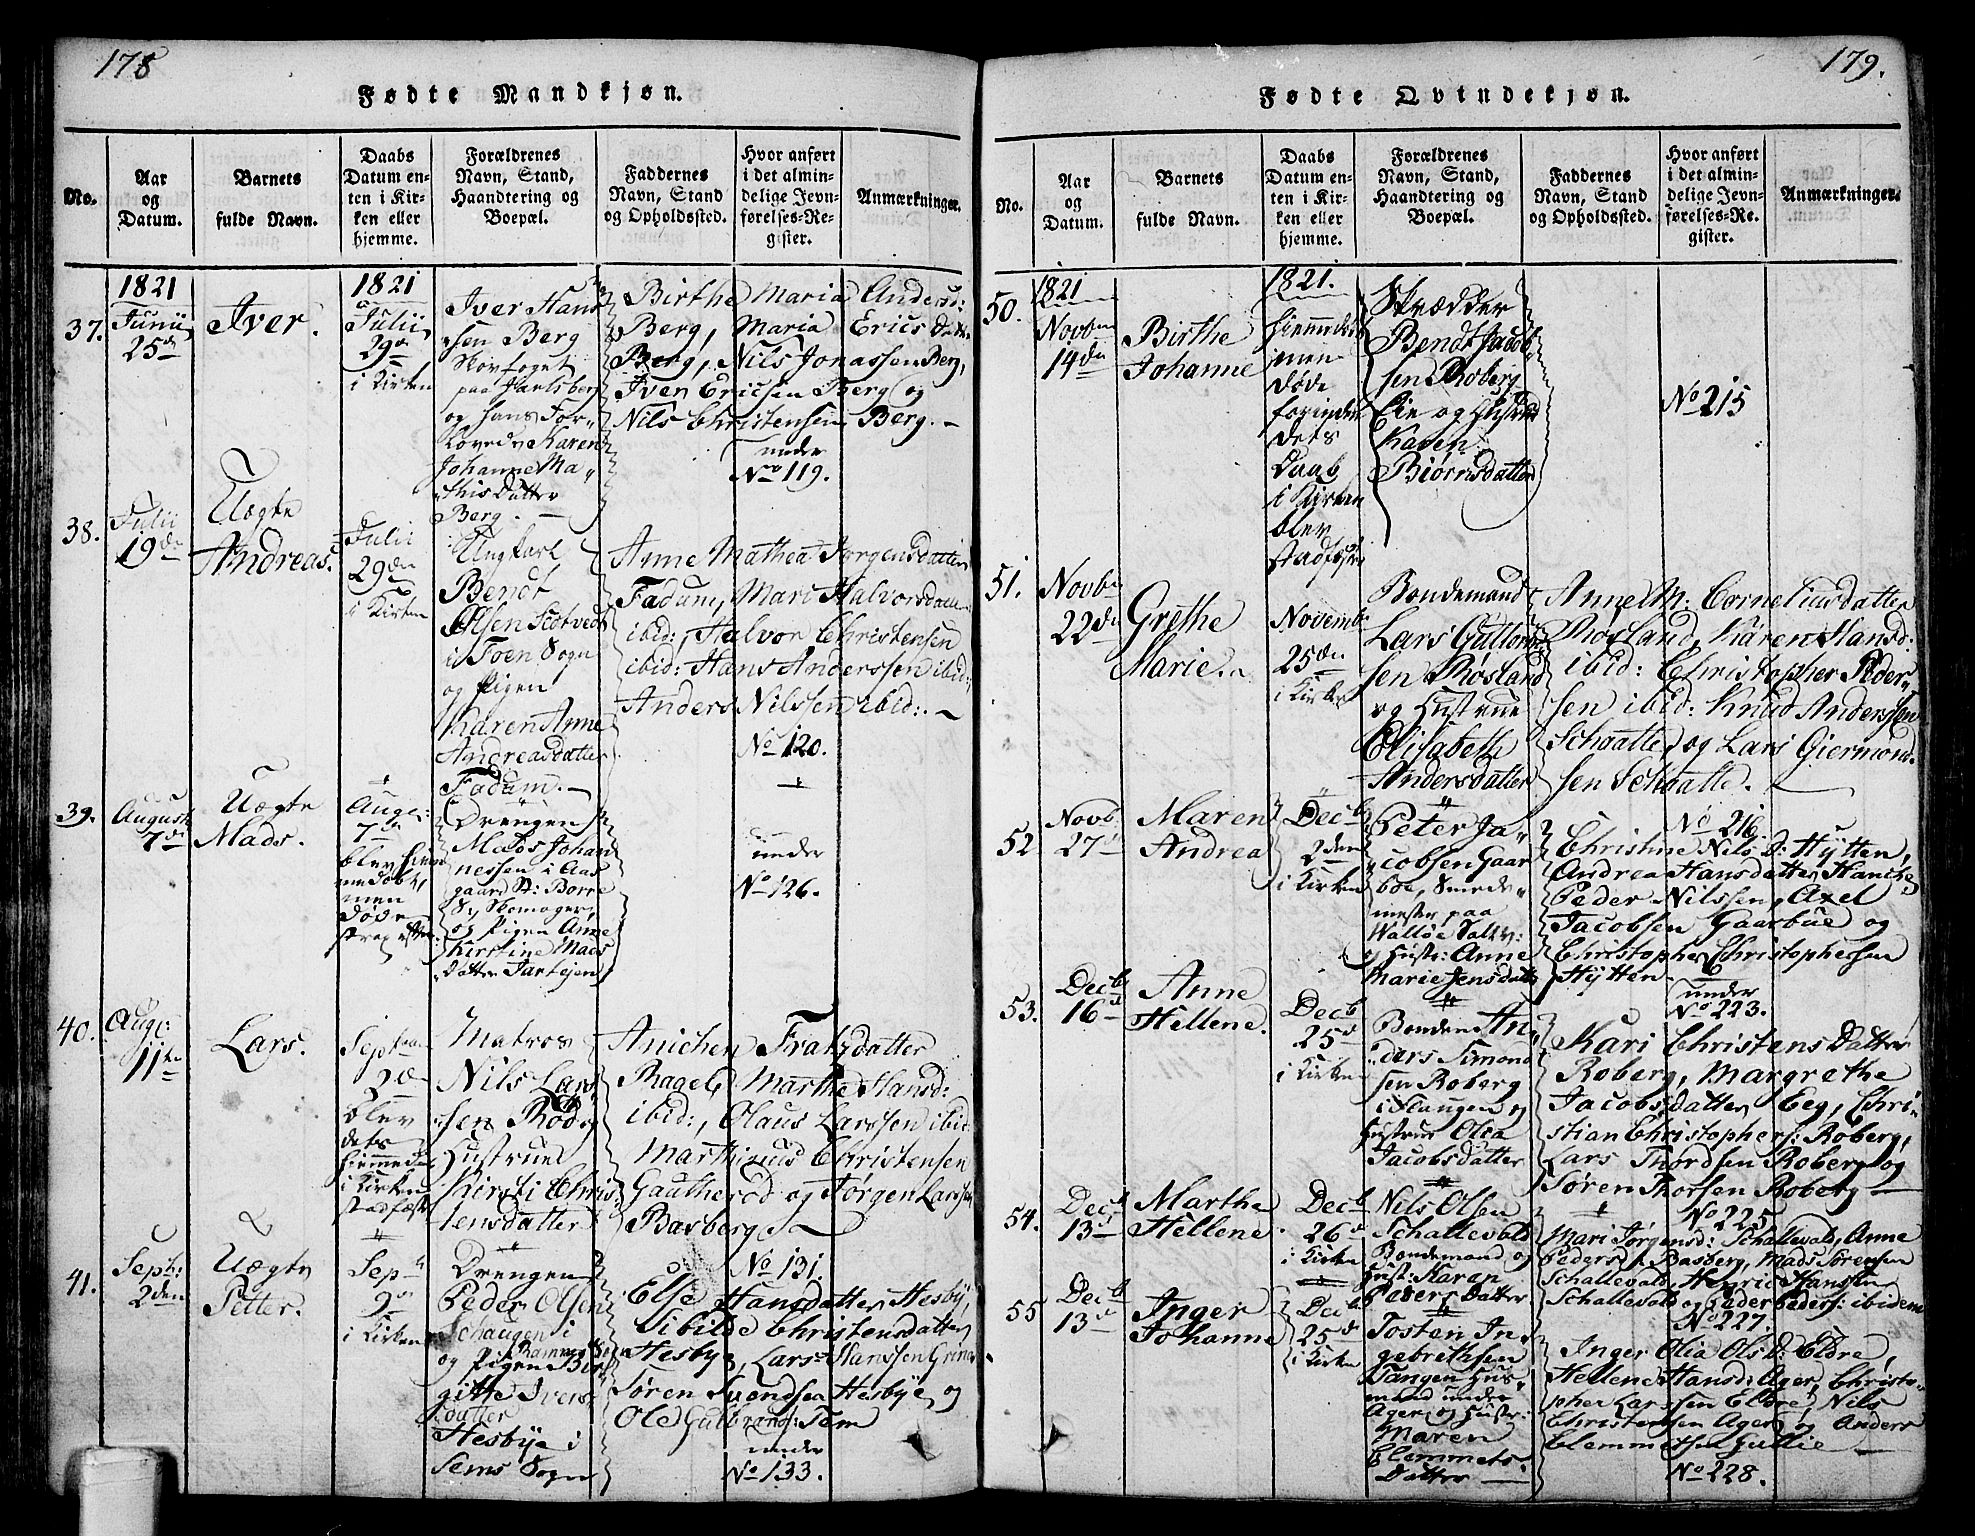 178
Fødte Mandkjøn.
No.
Aar
og
Datum.
Barnets
fulde Navn.
Daabs
Datum en-
ten i Kir-
ken eller
hjemme.
Forældrenes
Navn, Stand,
Haandtering og
Boepæl.
Faddernes
Navn, Stand
og Opholdssted.
Hvor anført
i det almin-
delige Jevn-
førelses-Re-
gister.
Anmærkninger.
37.
1821
Junii
25de
Iver.
1821
Julii
29de
i Kirken
Iver Hans
sen Berg
Skovfoget
paa Jarlsberg
og hans For-
lovede Karen
Johanne Ma-
this Datter
Berg.
Birthe Maria Andersd:
Berg, Maria Erics Datter
Berg, Nils Jonassen Berg,
Iver Ericsen Berg og
Nils Christensen Berg.
under
No 119.
38.
Julii
19de
Uægte
Andreas.
Julii
29den
i Kirken
Ungkarl
Bendt
Olsen Scotvedt
i Foen Sogn
og Pigen
Karen Anne
Andreasdatter
Fadum.
Anne Mathea Jørgensdatter
Fadum, Mari Halvorsdatter
ibid:, Halvor Christensen
ibid: Hans Anderssen ibid:,
Anders Nilssen ibid:.
No 120.
39.
Augusti
7de
Uægte
Mads.
Aug:
7de
blev hiem
me døbt,
men
døde
strax efter
Drengen
Mads Johan
nessen i Aas
gaard St: Borre
S: Skomager,
og Pigen Anne
Kirstine Mads
Datter Jarteien
under
No 126.
40.
Aug:
11te
Lars.
Septbr
2de
blev
dets
hiemmeda
i Kirken
stadfæst
Matros
Nils Lars
sen Rød og
Hustrue
Kirsti Chris-
tensdatter
Anichen Frantzdatter
Bagele Marthe Hansd:
ibid:, Olaus Larssen ibid:
Marthinius Christensen
Gautherød og Jørgen Larssen
Basberg.
No 131.
41.
Sept:
2den
Uægte
Petter.
Sept
9de
i Kirken
Drengen
Peder Olsen
Schaugen i
Ramnes Sogn
og Pigen Bir
gitte Ivers
datter
Hesbye i
Sems Sogn
Else Hansdatter Hesby,
Sibilde Christensdatter
Hesby, Lars Hanssen Grina
Søren Svendsen Hesbye og
Ole Gulbrands: Tem
under
No 133.
179.
Fødte Qvindekjøn.
No.
Aar
og
Datum.
Barnets
fulde Navn.
Daabs
Datum en-
ten i Kir-
ken eller
hjemme.
Forældrenes
Navn, Stand,
Haandtering og
Boepæl.
Faddernes
Navn, Stand
og Opholdssted.
Hvor anført
i det almin-
delige Jevn-
førelses-Re-
gister.
Anmærkninger.
50.
1821
Novbr
14de
Birthe
Johanne
1821.
hiemmedøbt
men
døde
forinden
dets
Daab
i Kirken
blev
stadfæstet
Skrædder
Bendt Jacob
sen Roberg
Eie og Hustrue
Karen
Biørnsdatter
No 215
51.
Novbr
22de
Grethe
Marie.
Novembr
25den
i Kirken
Bondemand
Lars Guttorm
sen Røsland
og Hustrue
Elisabeth
Andersdatter
Anne M. Corneliusdatter
Røsland, Karen Hansd:
ibid: Christopher Peder-
sen ibid: Knud Anderssen
Schaatte og Lars Giermond
sen Schaatte.
No 216.
52
Novb.
27de
Maren
Andrea
Decb
2den
i Kirken
Peter Ja-
cobsen Gaar
boe, Smede-
mester paa
Walløe Saltv:
og Hustr: Anne
Marie Jensdatt
Christine Nils D: Hytten,
Andrea Hansdatter Hanche
Peder Nilssen, Axel
Jacobsen Gaarbue og
Christopher Christophersen
Hytten.
under
No 223.
53.
Decb
16de
Anne
Hellene.
Decb
25de
i Kirken
Bonden An-
ders Simond
sen Roberg
i Slaugen og
Hustrue Olia
Jacobsdatter
Kari Christens Datter
Roberg, Margrethe
Jacobsdatter Eeg, Chri-
stian Christophers: Roberg,
Lars Thordsen Roberg og
Søren Thorsen Roberg
No 225.
54.
Decb
13de
Marthe
Hellene.
Decb
26de
i Kirken
Nils Olsen
Schallevold
Bondemand og
Hust: Karen
Peders Datter
Mari Jørgensd: Schallevald, Anne
Pedersd: Basberg, Mads Sørensen
Schallevald, Henric Hanssen
Schallevold og Peder Peders: ibidem
No 227.
55
Decb
13de
Inger
Johanne
Decb
25de
i Kirken
Tosten In-
gebrethsen
Tangen Hus-
mand under
Ager og Hustr:
Maren
Clemmets
Datter
Inger Olia Ols D: Eldre,
Hellene Hansd: Ager, Christo-
pher Larssen Eldre, Nils
Christensen Ager og Anders
Clemmetsen Gullie
No 228.